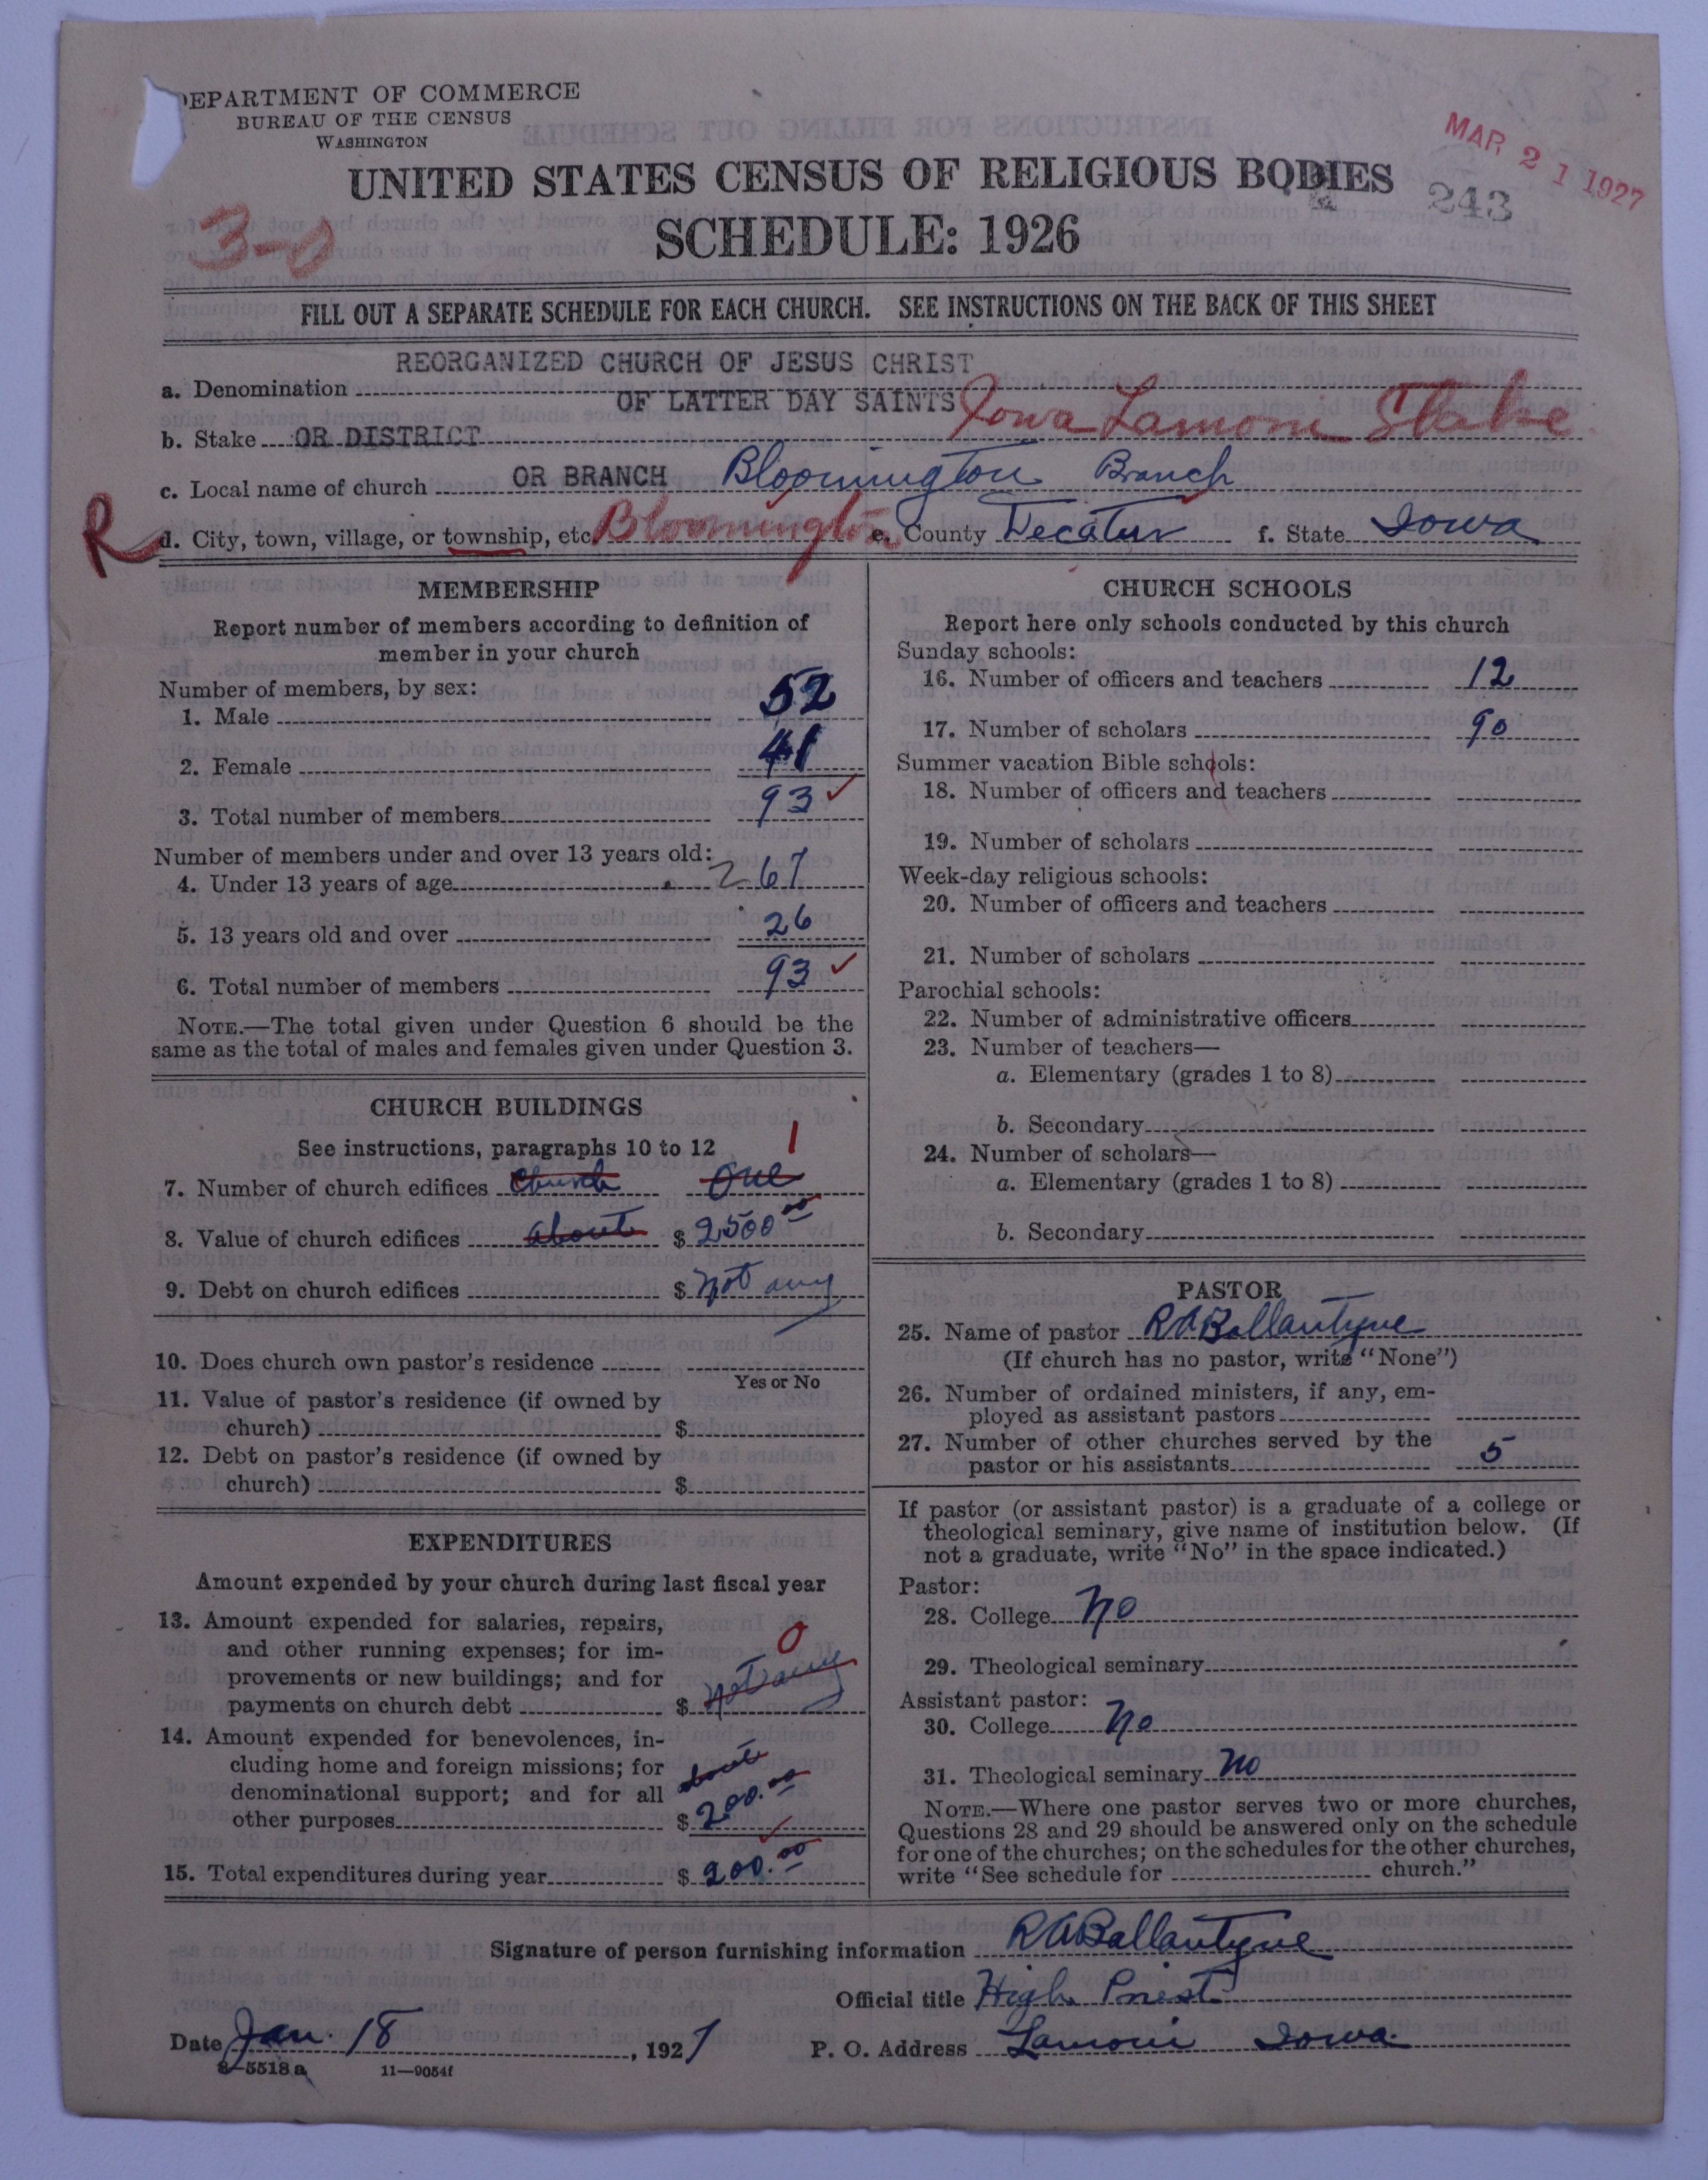 DEPARTMENT OF COMMERCE
BUREAU OF THE CENSUS
WASHINGTON
UNITED STATES CENSUS OF RELIGIOUS BODIES
MAR 21 1927
243
3-0
SCHEDULE: 1926
FILL OUT A SEPARATE SCHEDULE FOR EACH CHURCH. SEE INSTRUCTIONS ON THE BACK OF THIS SHEET
REORGANIZED CHURCH OF JESUS CHRIST
a. Denomination
OF LATTER DAY SAINTS
b. Stake OR DISTRICT Iowa Lamoni Stake
c. Local name of church OR BRANCH Bloomington Branch
R d. City, town, village, or township, etc. Bloomington e. County Decatur f. State Iowa
MEMBERSHIP
Report number of members according to definition of
member in your church
Number of members, by sex:
1. Male 52
2. Female 41
3. Total number of members 93 ✓
Number of members under and over 13 years old:
4. Under 13 years of age 2 67
5. 13 years old and over 26
6. Total number of members 93 ✓
NOTE.—The total given under Question 6 should be the
same as the total of males and females given under Question 3.
CHURCH BUILDINGS
See instructions, paragraphs 10 to 12
1
7. Number of church edifices Church One
8. Value of church edifices about $ 2500 00
9. Debt on church edifices $ Not any
10. Does church own pastor's residence
Yes or No
11. Value of pastor's residence (if owned by
church) $
12. Debt on pastor's residence (if owned by
church) $
EXPENDITURES
Amount expended by your church during last fiscal year
13. Amount expended for salaries, repairs,
and other running expenses; for im-
0
provements or new buildings; and for
payments on church debt $ not any
14. Amount expended for benevolences, in-
cluding home and foreign missions; for
denominational support; and for all about
other purposes $ 200.00
15. Total expenditures during year $ 200.00
CHURCH SCHOOLS
Report here only schools conducted by this church
Sunday schools:
16. Number of officers and teachers 12
17. Number of scholars 90
Summer vacation Bible schools:
18. Number of officers and teachers
19. Number of scholars
Week-day religious schools:
20. Number of officers and teachers
21. Number of scholars
Parochial schools:
22. Number of administrative officers
23. Number of teachers—
a. Elementary (grades 1 to 8)
b. Secondary
24. Number of scholars—
a. Elementary (grades 1 to 8)
b. Secondary
PASTOR
25. Name of pastor R A Ballantyne
(If church has no pastor, write "None")
26. Number of ordained ministers, if any, em-
ployed as assistant pastors
27. Number of other churches served by the
pastor or his assistants 5
If pastor (or assistant pastor) is a graduate of a college or
theological seminary, give name of institution below. (If
not a graduate, write "No" in the space indicated.)
Pastor:
28. College No
29. Theological seminary
Assistant pastor:
30. College No
31. Theological seminary No
NOTE.—Where one pastor serves two or more churches,
Questions 28 and 29 should be answered only on the schedule
for one of the churches; on the schedules for the other churches,
write "See schedule for church."
Signature of person furnishing information R A Ballantyne
Official title High Priest
Date Jan. 18, 1927 P. O. Address Lamoni Iowa.
8-5518 a 11—9054f